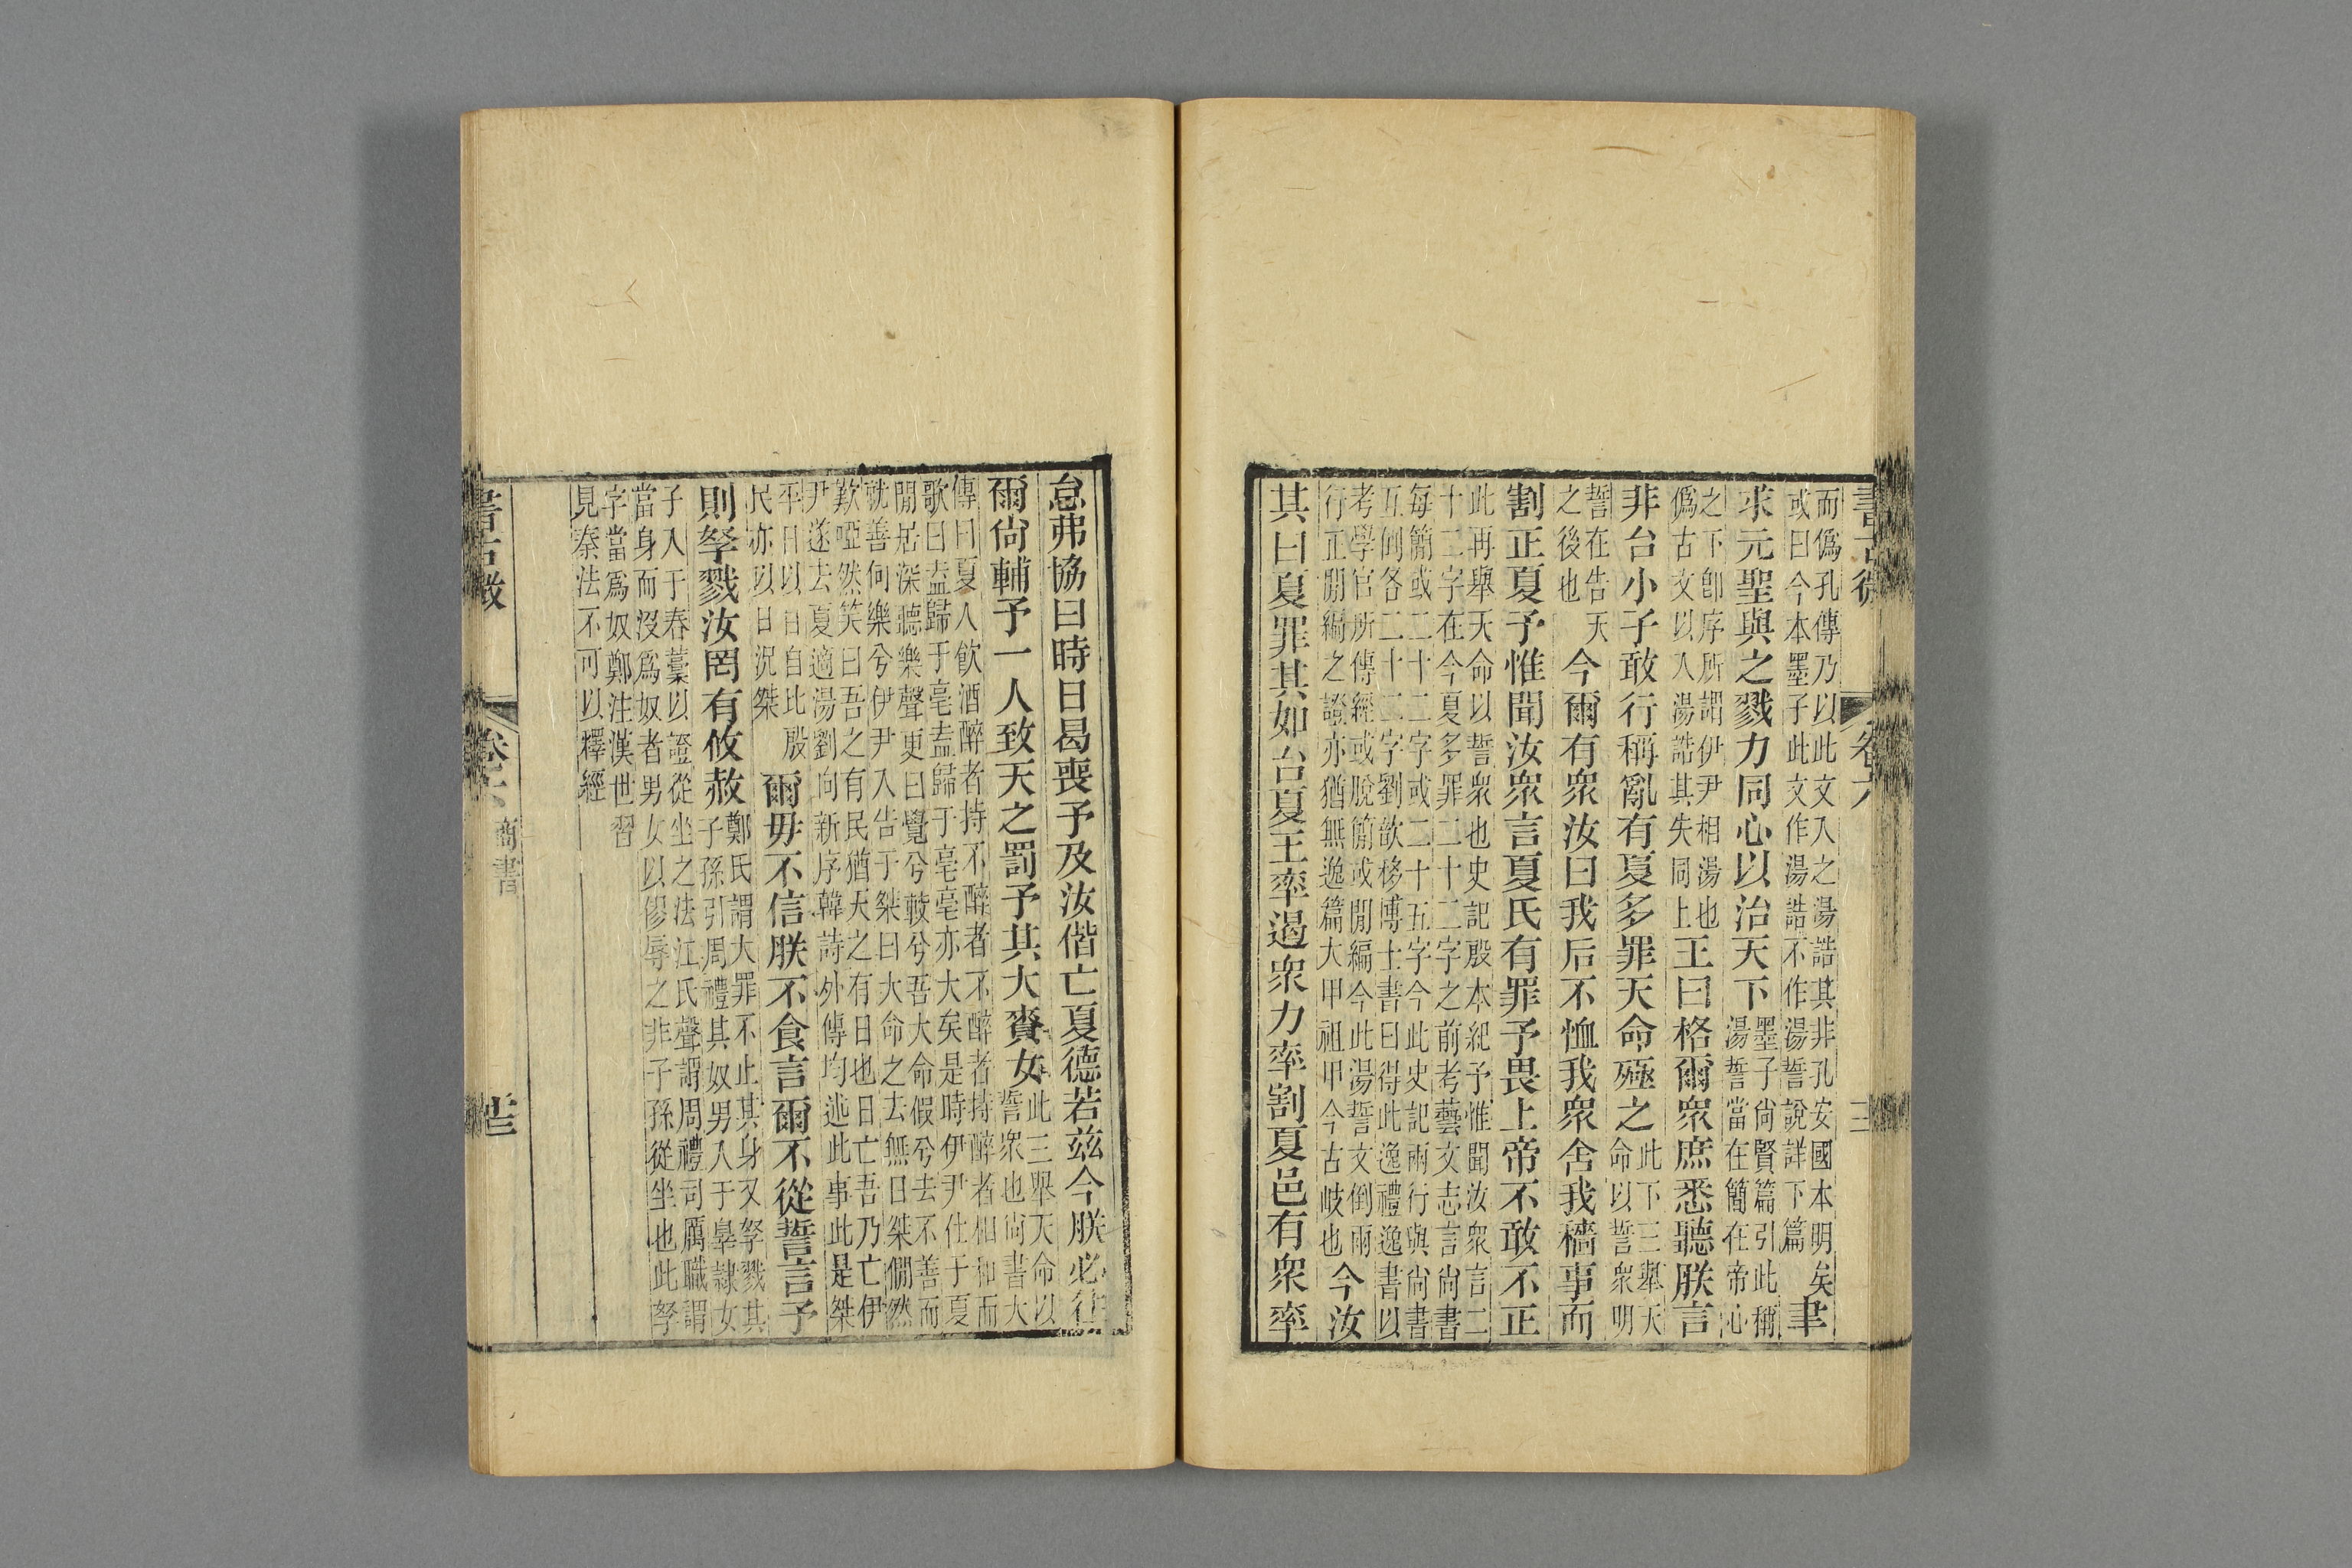 書古微 卷六 三
而偽孔傳乃以此文入之湯誥其非孔安國本明矣
或曰今本墨子此文作湯誥不作湯誓說詳下篇
聿
求元聖與之戮力同心以治天下
墨子尚賢篇引此稱
湯誓當在簡在帝心
之下卽序所謂伊尹相湯也
偽古文以入湯誥其失同上
王曰格爾衆庶悉聽朕言
非台小子敢行稱亂有夏多罪天命殛之
此下三舉天
命以誓衆明
誓在告天
之後也
今爾有衆汝曰我后不恤我衆舍我穡事而
割正夏予惟聞汝衆言夏氏有罪予畏上帝不敢不正
此再舉天命以誓衆也史記殷本紀予惟聞汝衆言二
十二字在今夏多罪二十二字之前考藝文志言尚書
每簡或二十二字或二十五字今此史記兩行與尚書
互倒各二十二字劉歆移博士書曰得此逸禮逸書以
考學官所傳經或脫簡或閒編今此湯誓文倒兩
行正閒編之證亦猶無逸篇大甲祖甲今古岐也
今汝
其曰夏罪其如台夏王率遏衆力率割夏邑有衆率
怠弗協曰時日曷喪予及汝偕亡夏德若茲今朕必往
爾尚輔予一人致天之罰予其大賚女
此三舉天命以
誓衆也尚書大
傳曰夏人飲酒醉者持不醉者不醉者持醉者相和而
歌曰盍歸于亳盍歸于亳亳亦大矣是時伊尹仕于夏
閒居深聽樂聲更曰覺兮較兮吾大命假兮去不善而
就善何樂兮伊尹入告于桀曰大命之去無日桀僩然
歎啞然笑曰吾之有民猶天之有日也日亡吾乃亡伊
尹遂去夏適湯劉向新序韓詩外傳均述此事此是桀
平日以日自比殷
民亦以日況桀
爾毋不信朕不食言爾不從誓言予
則孥戮汝罔有攸赦
鄭氏謂大罪不止其身又孥戮其
子孫引周禮其奴男入于辠隸女
子入于舂藁以證從坐之法江氏聲謂周禮司厲職謂
當身而沒爲奴者男女以僇辱之非子孫從坐也此孥
字當爲奴鄭注漢世習
見秦法不可以釋經
書古微 卷六 商書